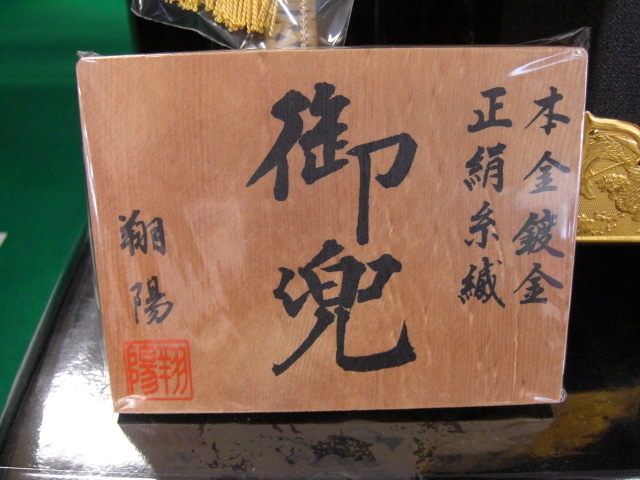 本金鍍金
正絹糸縅
御兜
翔陽
翔陽